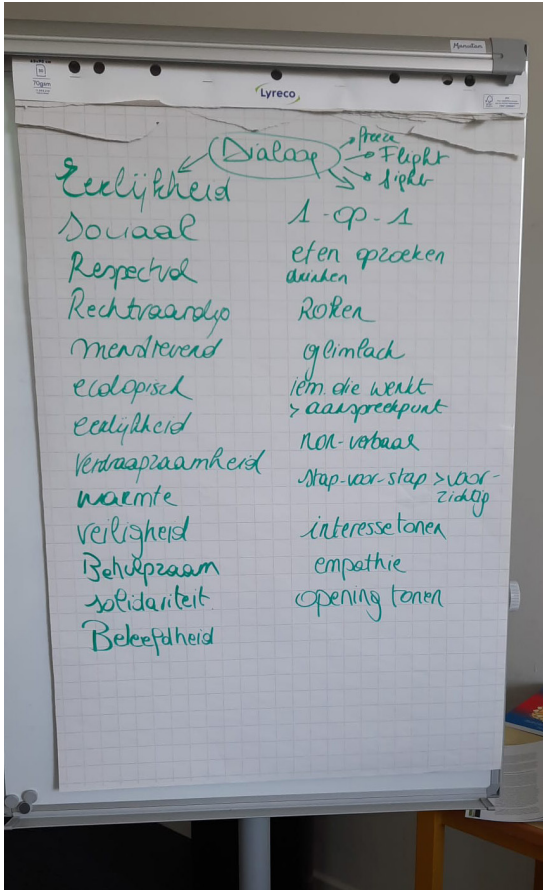 Manutan
70gsm
Lyreco
Dialoog
freeze
Flight
Eerlijkheid
Sociaal
Respectvol
Rechtvaardig
menslievend
ecologisch
eerlijkheid
Verdraagzaamheid
warmte
veiligheid
Behulpzaam
solidariteit
Beleefdheid
1-op-1
eten opzoeken
drinken
Roken
glimlach
iem. die werkt
> aanspreekpunt
non-verbaal
stap-voor-stap > voor-
zichtig
interesse tonen
empathie
opening tonen